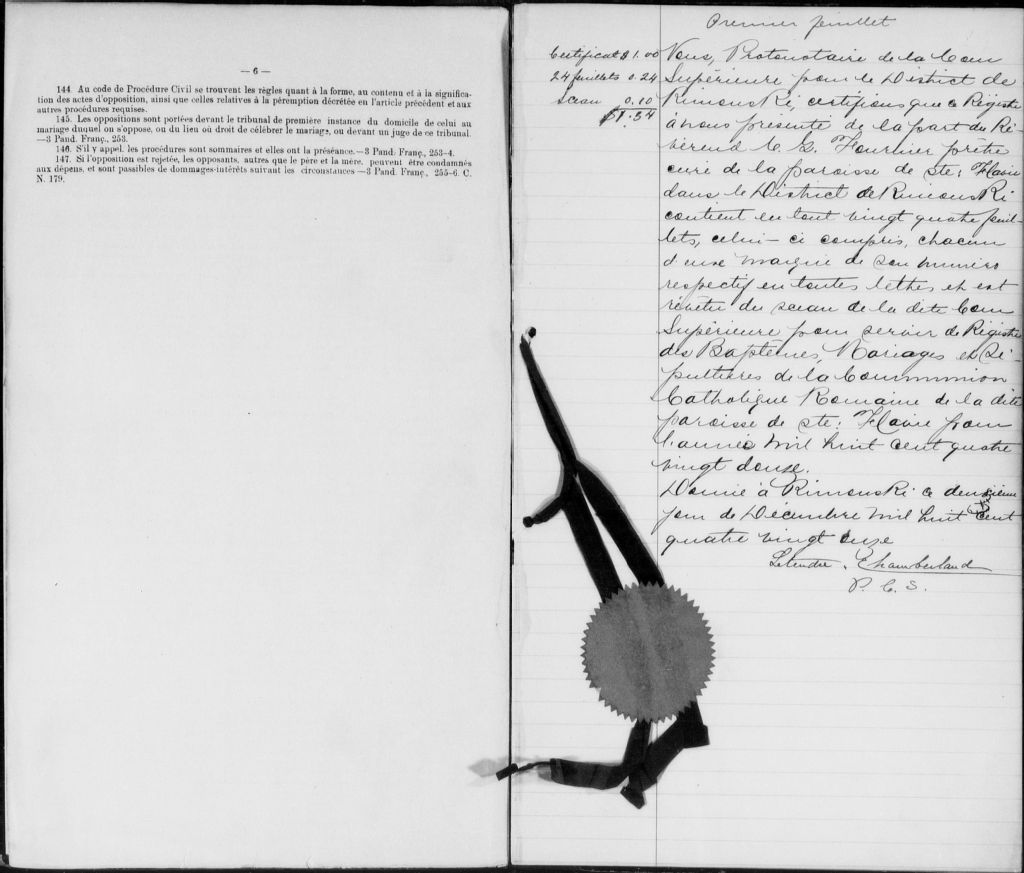 — 6 —
144. Au code de Procédure Civil se trouvent les règles quant à la forme, au contenu et à la significa-
tion des actes d'opposition, ainsi que celles relatives à la péremption décrétée en l'article précédent et aux
autres procédures requises.
145. Les oppositions sont portées devant le tribunal de première instance du domicile de celui au
mariage duquel on s'oppose, ou du lieu où droit de célébrer le mariage, ou devant un juge de ce tribunal.
—3 Pand. Franç., 253.
146. S'il y appel, les procédures sont sommaires et elles ont la préséance.—3 Pand. Franç., 253-4.
147. Si l'opposition est rejetée, les opposants, autres que le père et la mère, peuvent être condamnés
aux dépens, et sont passibles de dommages-intérêts suivant les circonstances —3 Pand. Franç., 255-6. C.
N. 179.
Premier feuillet
Certificat $1.00
24 feuillets 0.24
Sceau 0.10
$1.34
Nous, Protonotaire de la Cour
Supérieure pour le District de
Rimouski, certifions que ce Régistre
à nous présenté de la part du Ré-
vérend C. S. Fournier prêtre
curé de la paroisse de Ste: Flavie
dans le District de Rimouski
contient en tout vingt quatre feuil-
lets, celui-ci compris, chacun
d'eux marqué de son numéro
respectif en toutes lettres et est
révêtu du sceau de la dite Cour
Supérieure pour servir de Régistre
des Baptêmes, Mariages et Sé-
pultures de la Communion
Catholique Romaine de la dite
paroisse de Ste: Flavie pour
l'année mil huit cent quatre
vingt douze.
Donné à Rimouski ce deuxième
jour de Décembre mil huit cent
quatre vingt onze
Letendre & Chamberland
P. C. S.